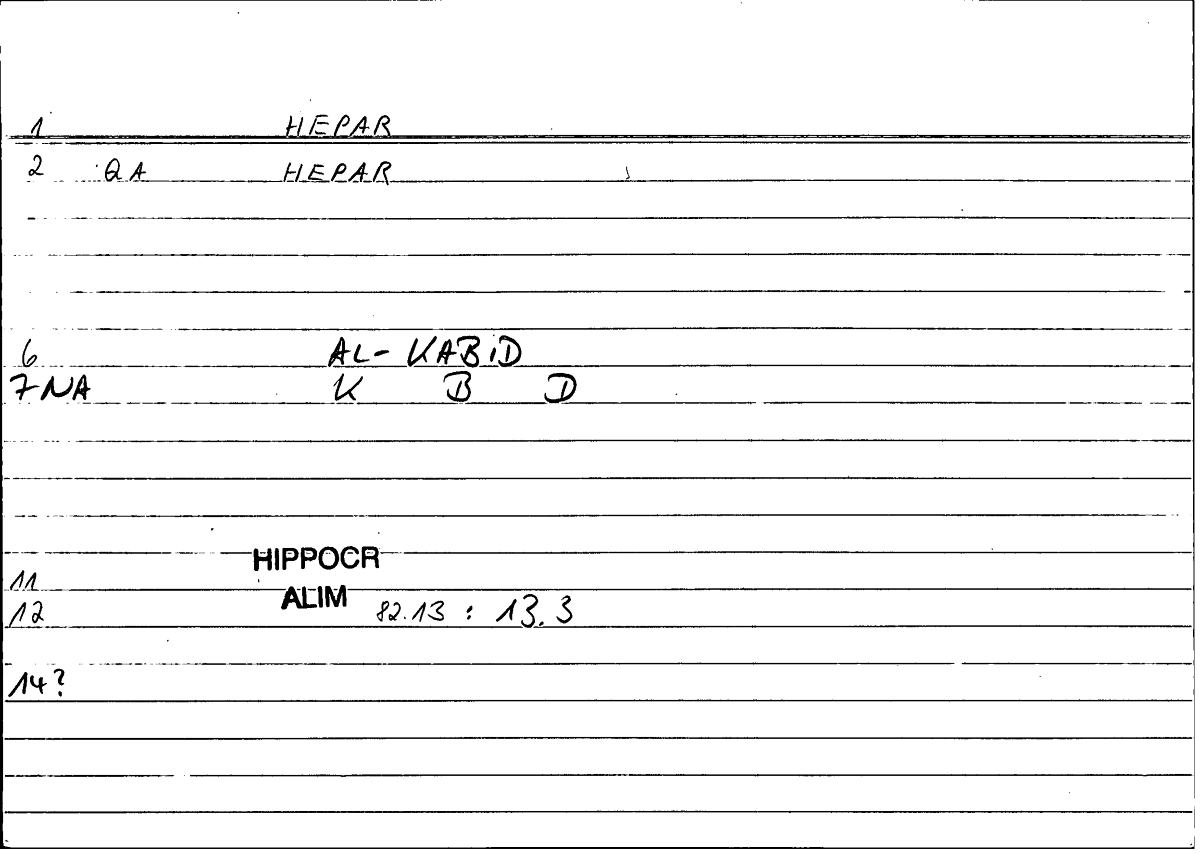 1 HEPAR
2 QA HEPAR
6 AL-KABiD
7 NA K B D
HIPPOCR
11
ALIM
12 82.13 : 13.3
14?